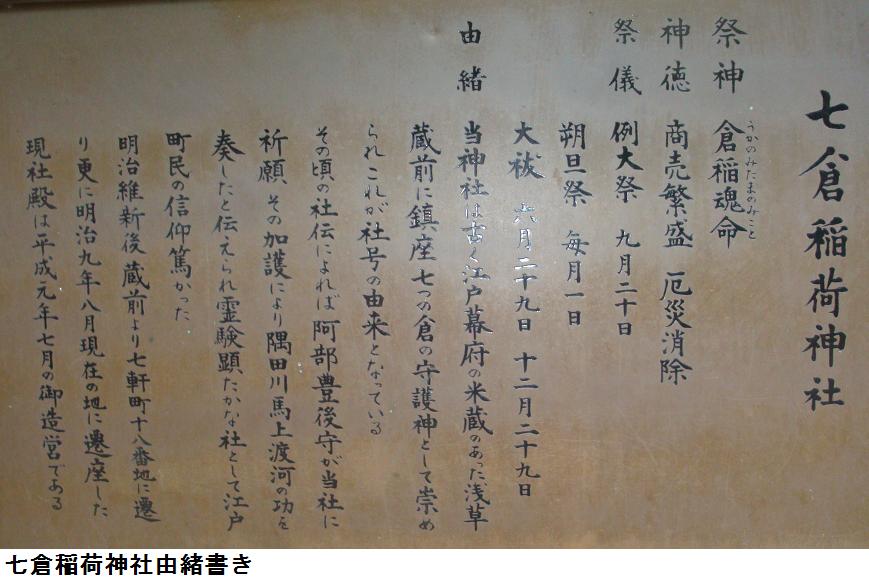 七倉稲荷神社
祭神 倉稲魂命
うかのみたまのみこと
神徳 商売繁盛 厄災消除
祭儀 例大祭 九月二十日
朔旦祭 毎月一日
大祓 六月二十九日 十二月二十九日
由緒 当神社は古く江戸幕府の米蔵のあった浅草
蔵前に鎮座 七つの倉の守護神として崇め
られ これが社号の由来となっている
その頃の社伝によれば 阿部豊後守が当社に
祈願 その加護により隅田川馬上渡河の功を
奏したと伝えられ霊験顕たかな社として江戸
町民の信仰篤かった
明治維新後 蔵前より七軒町十八番地に遷
り更に明治九年八月現在の地に遷座した
現社殿は平成元年七月の御造営である
七倉稲荷神社由緒書き